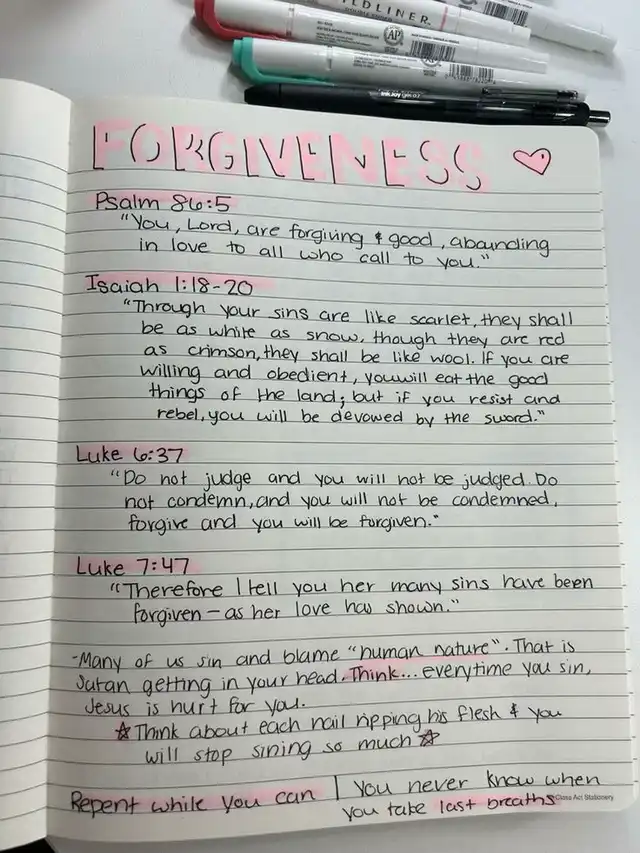 ILDLINER
AP
AP
InkJoy gel 0.7
FORGIVENESS
Psalm 86:5
"You, Lord, are forgiving & good, abounding
in love to all who call to you."
Isaiah 1:18-20
"Through your sins are like scarlet, they shall
be as white as snow, though they are red
as crimson, they shall be like wool. If you are
willing and obedient, you will eat the good
things of the land; but if you resist and
rebel, you will be devowed by the sword."
Luke 6:37
"Do not judge and you will not be judged. Do
not condemn, and you will not be condemned,
forgive and you will be forgiven."
Luke 7:47
"Therefore I tell you her many sins have been
forgiven – as her love has shown."
-Many of us sin and blame "human nature". That is
Satan getting in your head. Think... everytime you sin,
Jesus is hurt for you.
☆Think about each nail ripping his flesh & you
will stop sining so much☆
Repent while you can | you never know when
you take last breaths
Class Act Stationery